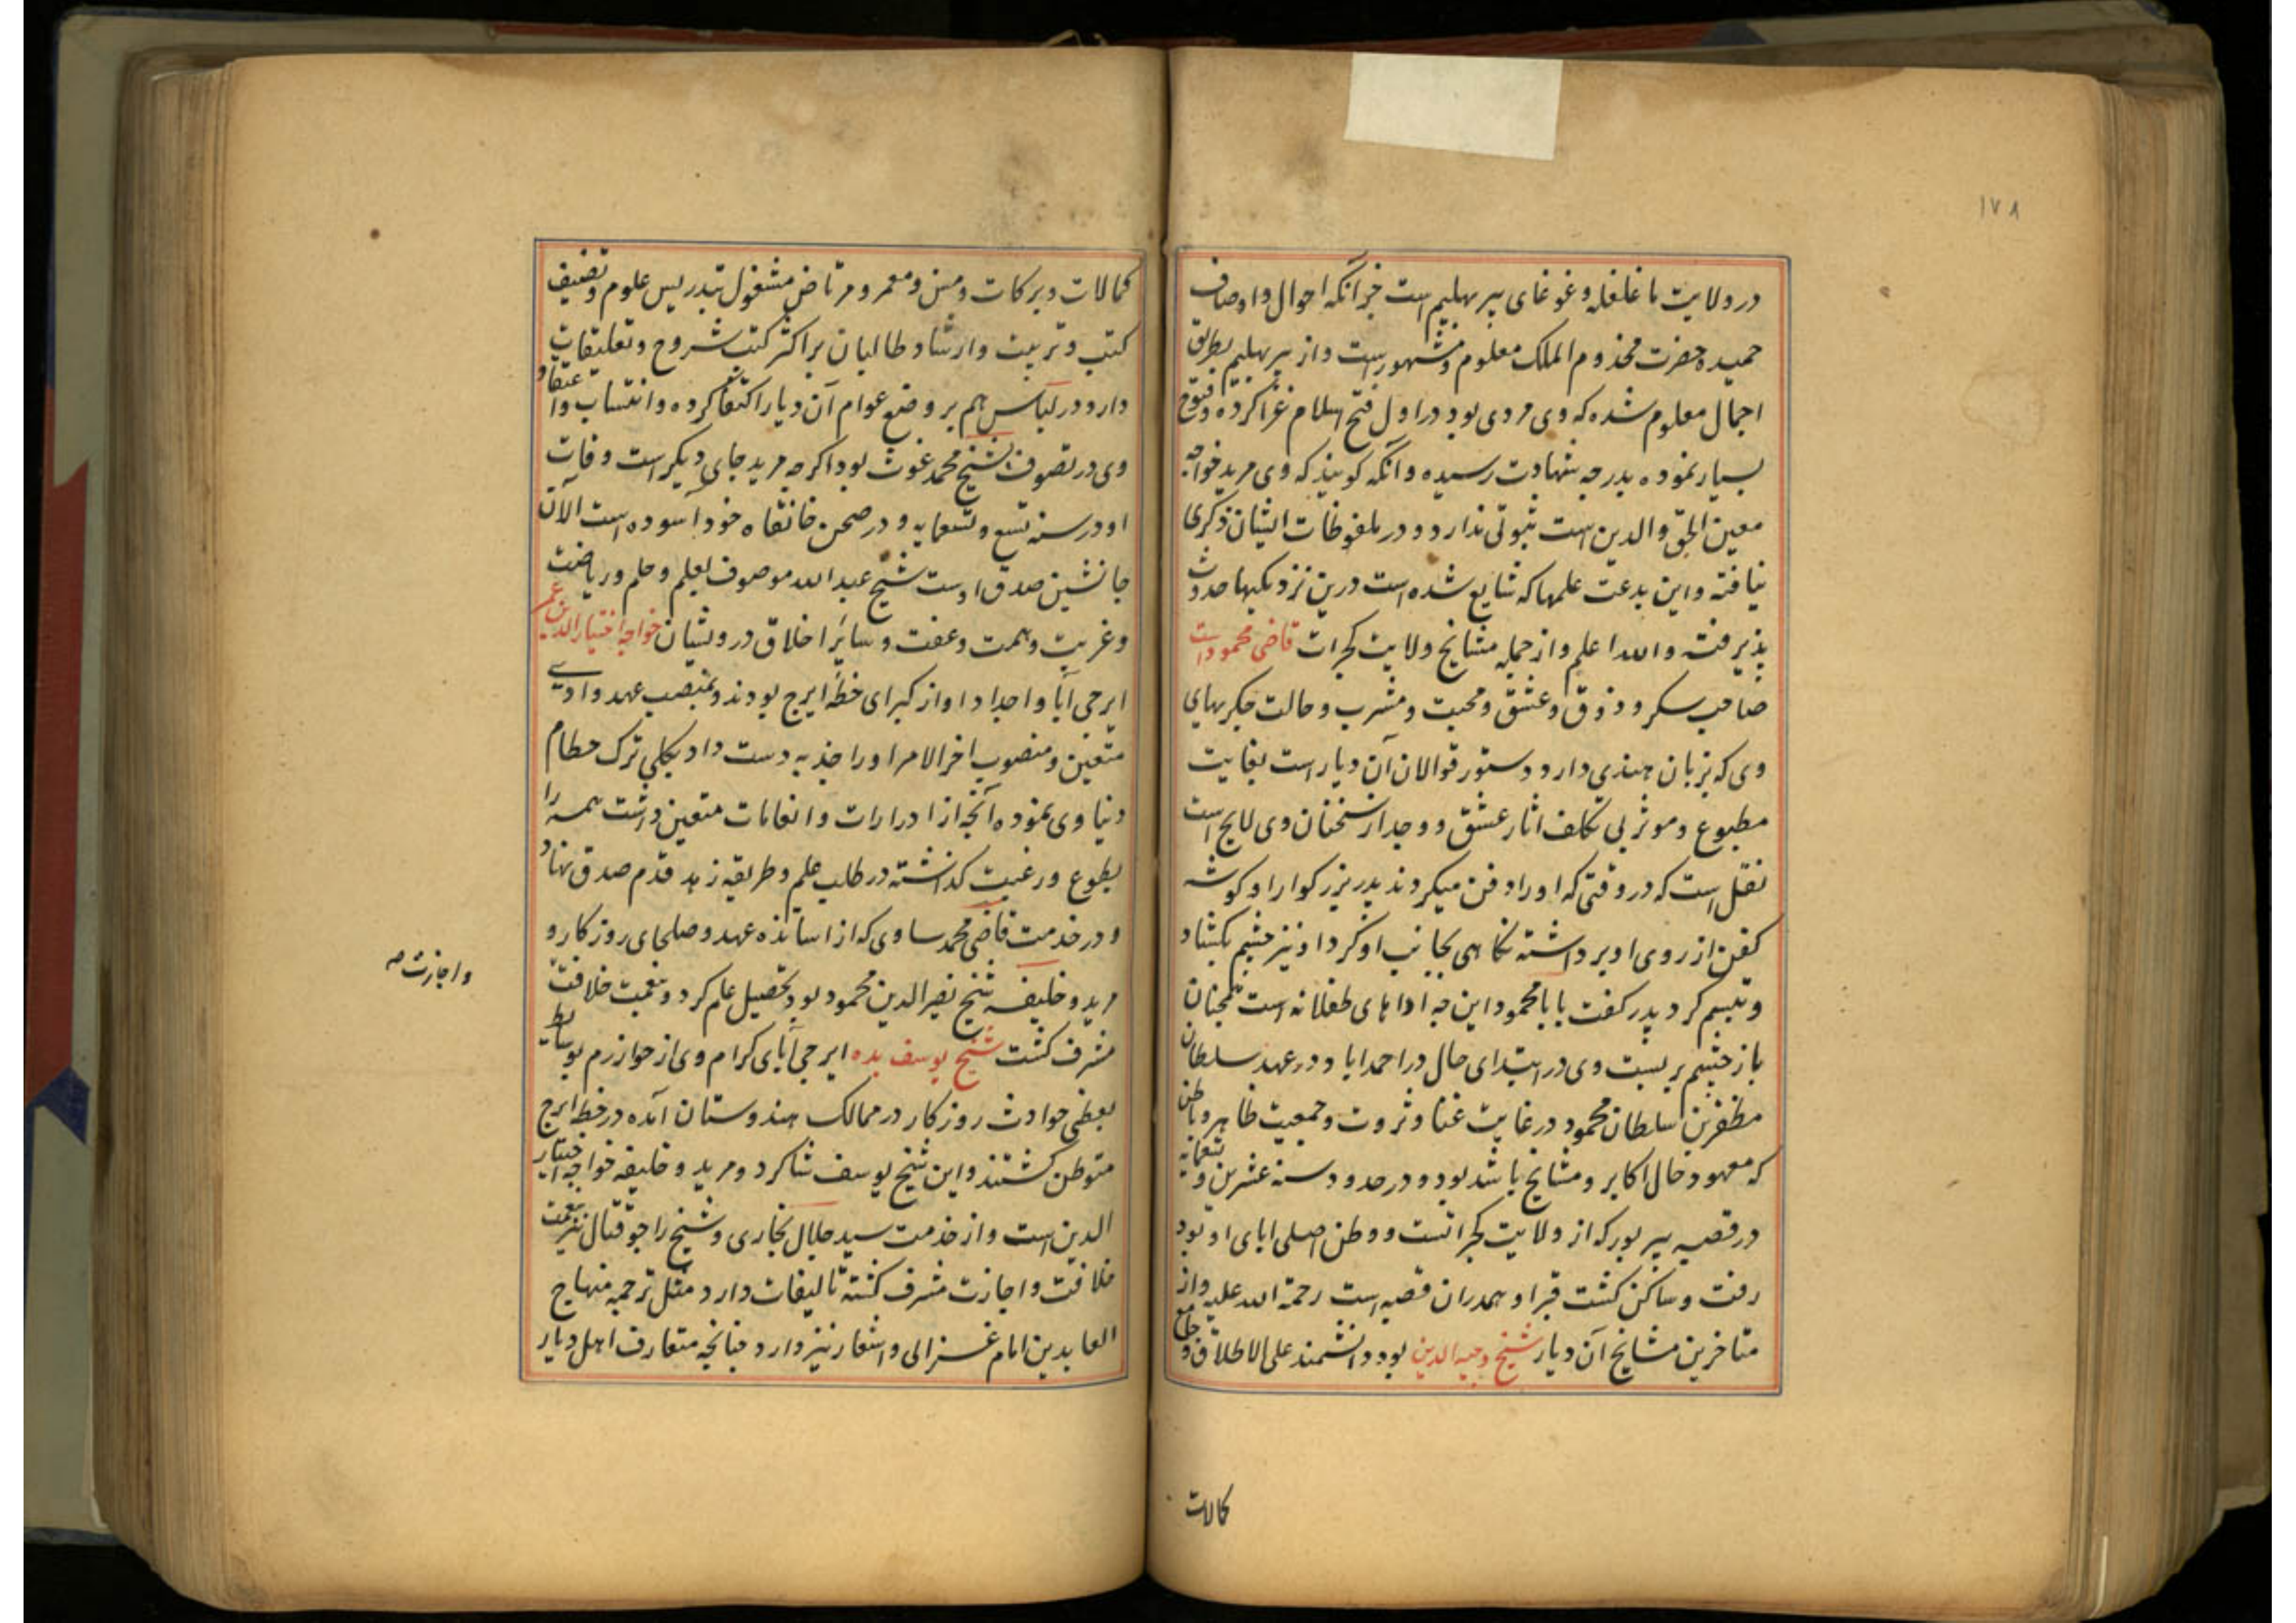 ۱۷۸
در ولایت ما غلغله و غوغای پیر بهلیم است جز آنکه احوال و اوصاف
حمیده حضرت مخدوم الملک معلوم و مشهور است و از پیر بهلیم بطریق
اجمال معلوم شده که وی مردی بود در اول فتح اسلام غزا کرده و فتوح
بسیار نموده بدرجه شهادت رسیده و آنکه کویند که وی مرید خواجه
معین الحق والدین است ثبوتی ندارد و در ملفوظات ایشان ذکری
نیافته و این بدعت علمها که شایع شده است درین نزدیکیها حدوث
پذیرفت والله اعلم و از جمله مشایخ ولایت کجرات قاضی محمود است
صاحب سکر و ذوق و عشق و محبت و مشرب و حالت جکریهای
وی که بزبان هندی دارد و دستور قوالان آن دیار است بغایت
مطبوع و موثر بی تکلف اثار عشق و وجد از سخنان وی لایح است
نقل است که در وقتی که او را دفن میکردند پدر بزرکوار او کوشه
کفن از روی او برداشته نکاهی بجانب او کرد او نیز چشم بکشاد
و تبسم کرد پدر کفت بابا محمود این چه اداهای طفلانه است همچنان
باز چشم بر بست وی در ابتدای حال در احمداباد در عهد سلطان
مظفر بن سلطان محمود در غایت غنا و ثروت و جمعیت ظاهر و باطن
که معهود حال اکابر و مشایخ باشد بود و در حدود سنه عشرین و تسعمایه
در قصبه بیرپور که از ولایت کجراتست و وطن اصلی ابای او بود
رفت و ساکن کشت قبر او همدران قصبه است رحمة الله علیه و از
متاخرین مشایخ آن دیار شیخ وجیه الدین بود دانشمند علی الاطلاق و جامع
کمالات
کمالات و برکات و مسن و معمر و مرتاض مشغول بتدریس علوم و تصنیف
کتب و تربیت و ارشاد طالبان بر اکثر کتب شروح و تعلیقات
دارد و در لباس هم بر وضع عوام آن دیار اکتفا کرده و انتساب و اعتقاد
وی در تصوف بشیخ محمد غوث بود اکرچه مرید جای دیکر است وفات
او در سنه تسع و تسعمایه و در صحن خانقاه خود آسوده است الآن
جانشین صدق اوست شیخ عبد الله موصوف بعلم و حلم و ریاضت
و غربت و همت و عفت و سایر اخلاق درویشان خواجه اختیار الدین عمر
ایرجی آبا و اجداد او از کبرای خطه ایرج بودند و بمنصب عهد و ادیسے
متعین و منصوب اخر الامر او را جذبه دست داد بکلی ترک حطام
دنیاوی نموده آنچه از ادرارات و انعامات متعین داشت همه را
بطوع و رغبت کذاشته در طلب علم و طریقه زهد قدم صدق نهاد
و در خدمت قاضی محمد ساوی که از اساتذه عهد و صلحای روزکار و
مرید و خلیفه شیخ نصیر الدین محمود بود تحصیل علم کرد و بنعمت خلافت
و اجازت صه
مشرف کشت شیخ یوسف بده ایرجی آبای کرام وی از خوارزم بوسایط
بعضی حوادث روزکار در ممالک هندوستان آمده در خطه ایرج
متوطن کشتند و این شیخ یوسف شاکرد و مرید و خلیفه خواجه اختیار
الدین است و از خدمت سید جلال بخاری و شیخ راجو قتال نیز بنعمت
خلافت و اجازت مشرف کشته تالیفات دارد مثل ترجمه منهاج
العابدین امام غزالی و اشعار نیز دارد چنانچه متعارف اهل دیار